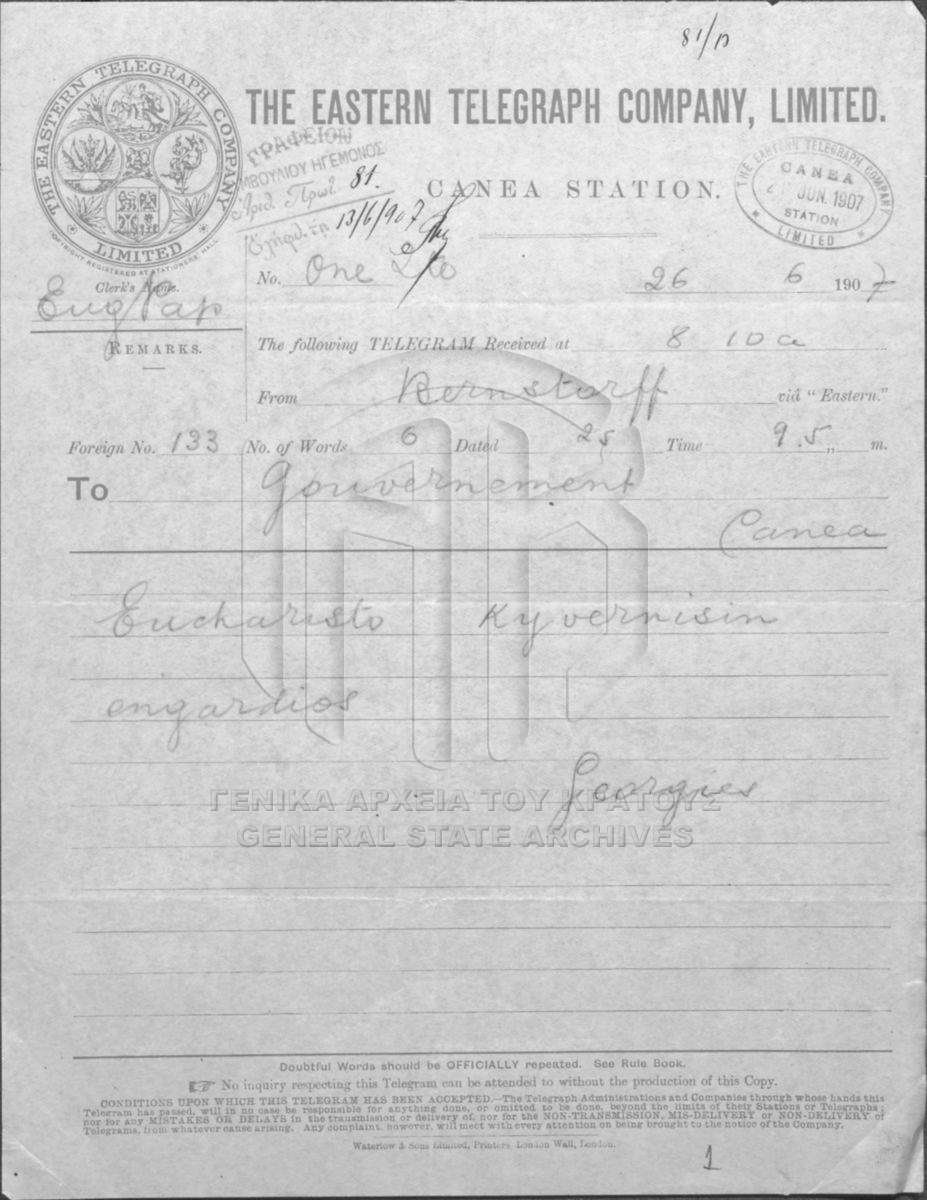 81/Π
THE EASTERN TELEGRAPH COMPANY, LIMITED.
THE EASTERN TELEGRAPH COMPANY
LIMITED
COPYRIGHT REGISTERED AT STATIONERS' HALL
ΓΡΑΦΕΙΟΝ
ΜΒΟΥΛΙΟΥ ΗΓΕΜΟΝΟΣ
Αριθ. Πρωτ. 81.
Ελήφθη τη 13/6/907
CANEA STATION.
THE EASTERN TELEGRAPH COMPANY
CANEA
JUN. 1907
STATION
LIMITED
Clerk's Name.
Eug Pap
REMARKS.
No. One 26 6 1907
The following TELEGRAM Received at 8 10 a
From Bernstorff viâ "Eastern."
Foreign No. 133 No. of Words 6 Dated 25 Time 9.5 „ m.
To Gouvernement
Canea
Eucharisto Kyvernisin
engardios
Georgios
ΓΕΝΙΚΑ ΑΡΧΕΙΑ ΤΟΥ ΚΡΑΤΟΥΣ
GENERAL STATE ARCHIVES
Doubtful Words should be OFFICIALLY repeated. See Rule Book.
☞ No inquiry respecting this Telegram can be attended to without the production of this Copy.
CONDITIONS UPON WHICH THIS TELEGRAM HAS BEEN ACCEPTED.—The Telegraph Administrations and Companies through whose hands this
Telegram has passed, will in no case be responsible for anything done, or omitted to be done, beyond the limits of their Stations or Telegraphs;
nor for any MISTAKES OR DELAYS in the transmission or delivery of, nor for the NON-TRANSMISSION, MIS-DELIVERY or NON-DELIVERY of
Telegrams, from whatever cause arising. Any complaint, however, will meet with every attention on being brought to the notice of the Company.
Waterlow & Sons Limited, Printers, London Wall, London.
1